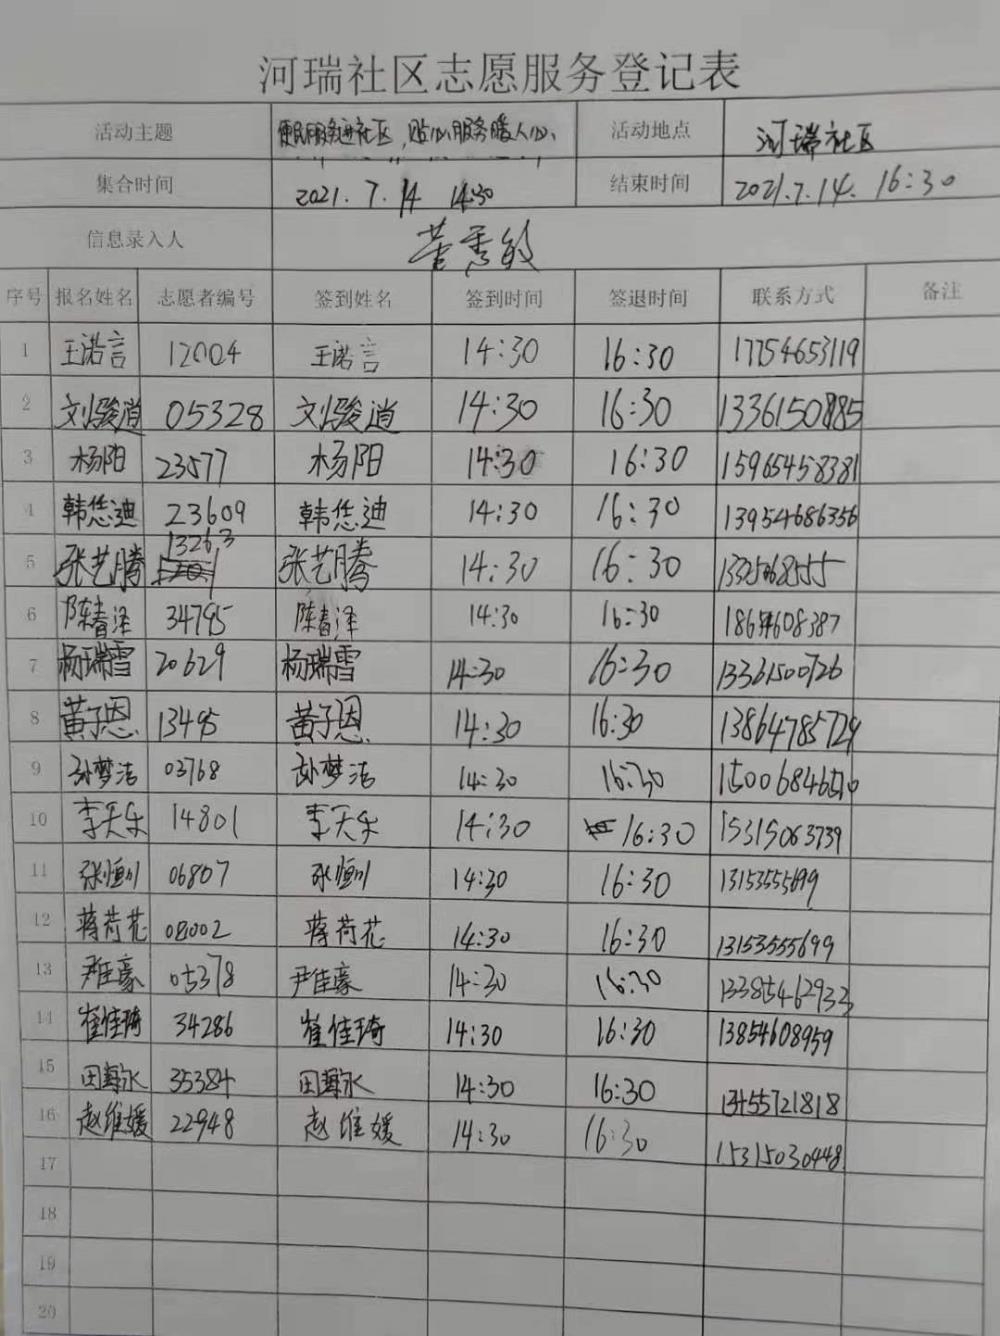 河瑞社区志愿服务登记表
活动主题 便民服务进社区，贴心服务暖人心、 活动地点 河瑞社区
集合时间 2021.7.14 14:30 结束时间 2021.7.14. 16:30
信息录入人 董秀敏
序号 报名姓名 志愿者编号 签到姓名 签到时间 签退时间 联系方式 备注
1 王诺言 12004 王诺言 14:30 16:30 17754653119
2 刘骏逍 05328 刘骏逍 14:30 16:30 1336150885
3 杨阳 23577 杨阳 14:30 16:30 15965458381
4 韩恁迪 23609 韩恁迪 14:30 16:30 13954686356
5 张艺腾 13263 张艺腾 14:30 16:30
6 陈春泽 34795 陈春泽 14:30 16:30 18654608387
7 杨瑞雪 20629 杨瑞雪 14:30 16:30 13361500726
8 黄子恩 13495 黄子恩 14:30 16:30 13864785729
9 孙梦洁 03768 孙梦洁 14:30 16:30 15006846510
10 李天乐 14801 李天乐 14:30 16:30 15315063739
11 张恒川 06807 张恒川 14:30 16:30 13153555699
12 蒋荷花 08002 蒋荷花 14:30 16:30 13153555699
13 尹佳豪 05378 尹佳豪 14:30 16:30 13385462933
14 崔佳琦 34286 崔佳琦 14:30 16:30 13854608959
15 35384 14:30 16:30 13455721818
16 赵维媛 22948 赵维媛 14:30 16:30 15315030448
17
18
19
20